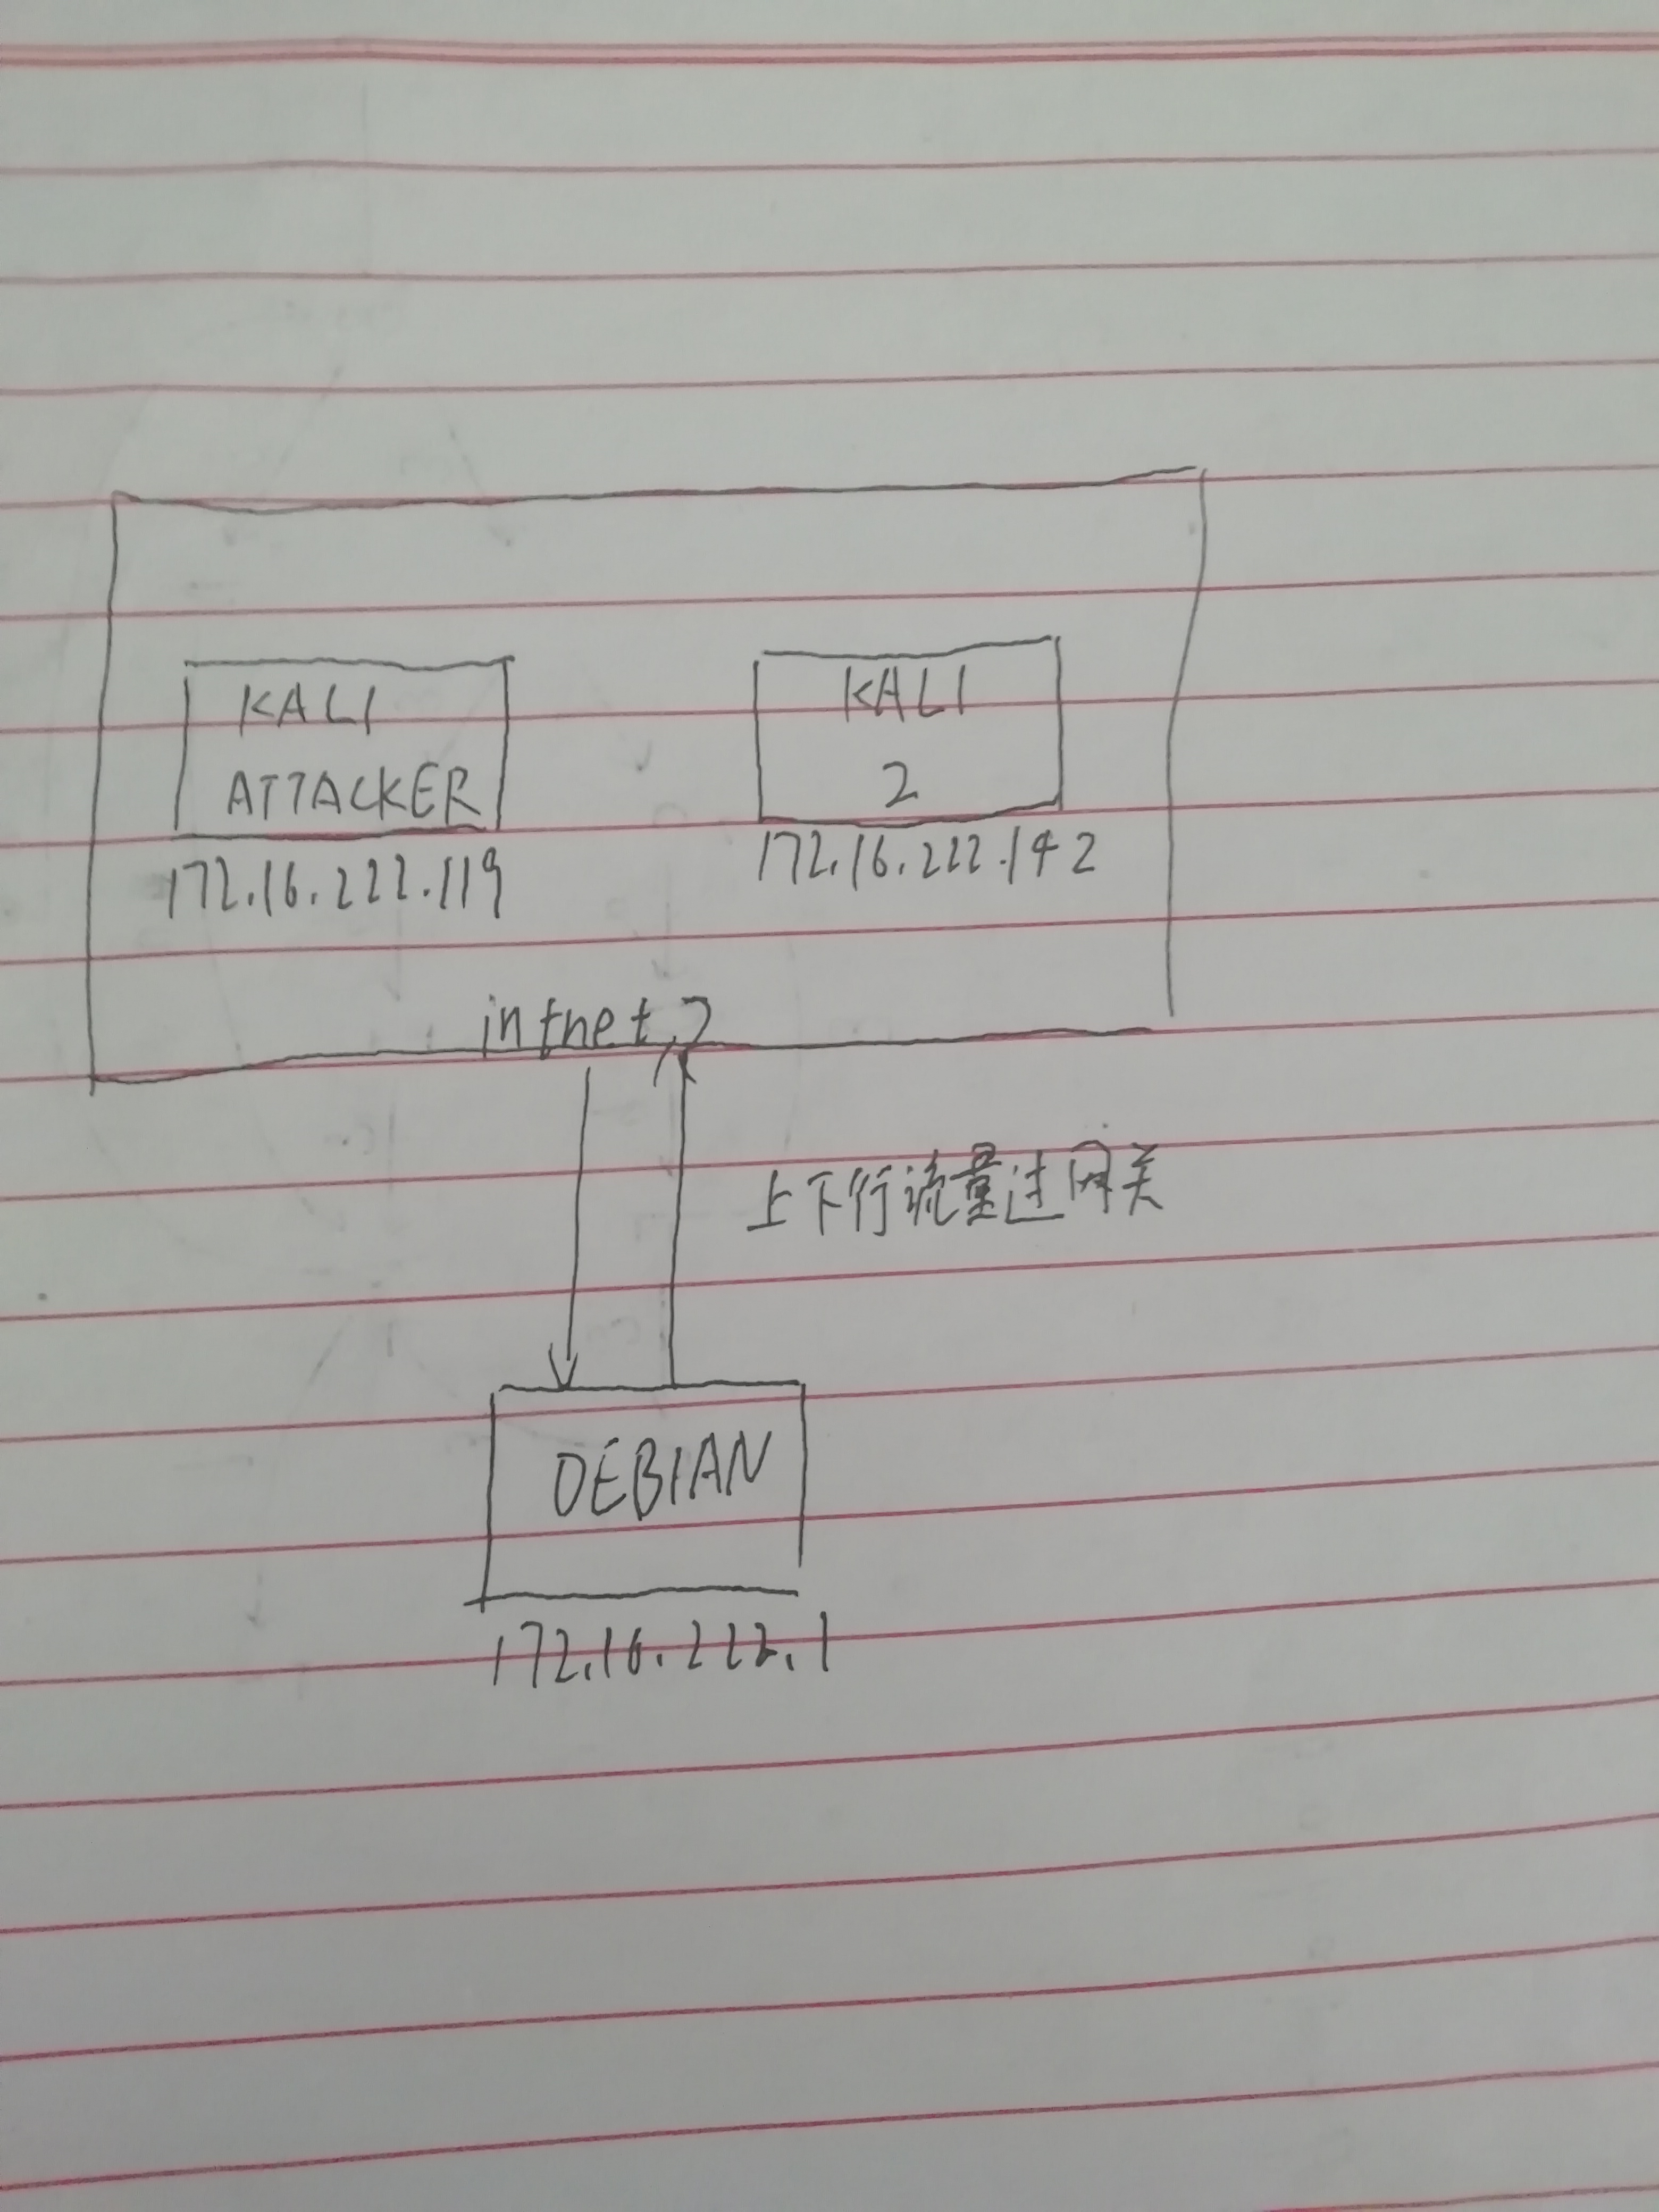 KALI
ATTACKER
172.16.222.119
KALI
2
172.16.222.142
intnet2
上下行流量过网关
DEBIAN
172.16.222.1